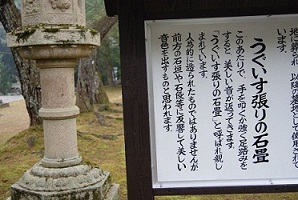 います。
うぐいす張りの石畳
このあたりで、手を叩くか強く足踏みを
すると、美しい音が返ってきます。
「うぐいす張りの石畳」と呼ばれ親し
まれています。
人為的に造られたものではありませんが
前方の石垣や石段等に反響して美しい
音色を出すものと思われます。